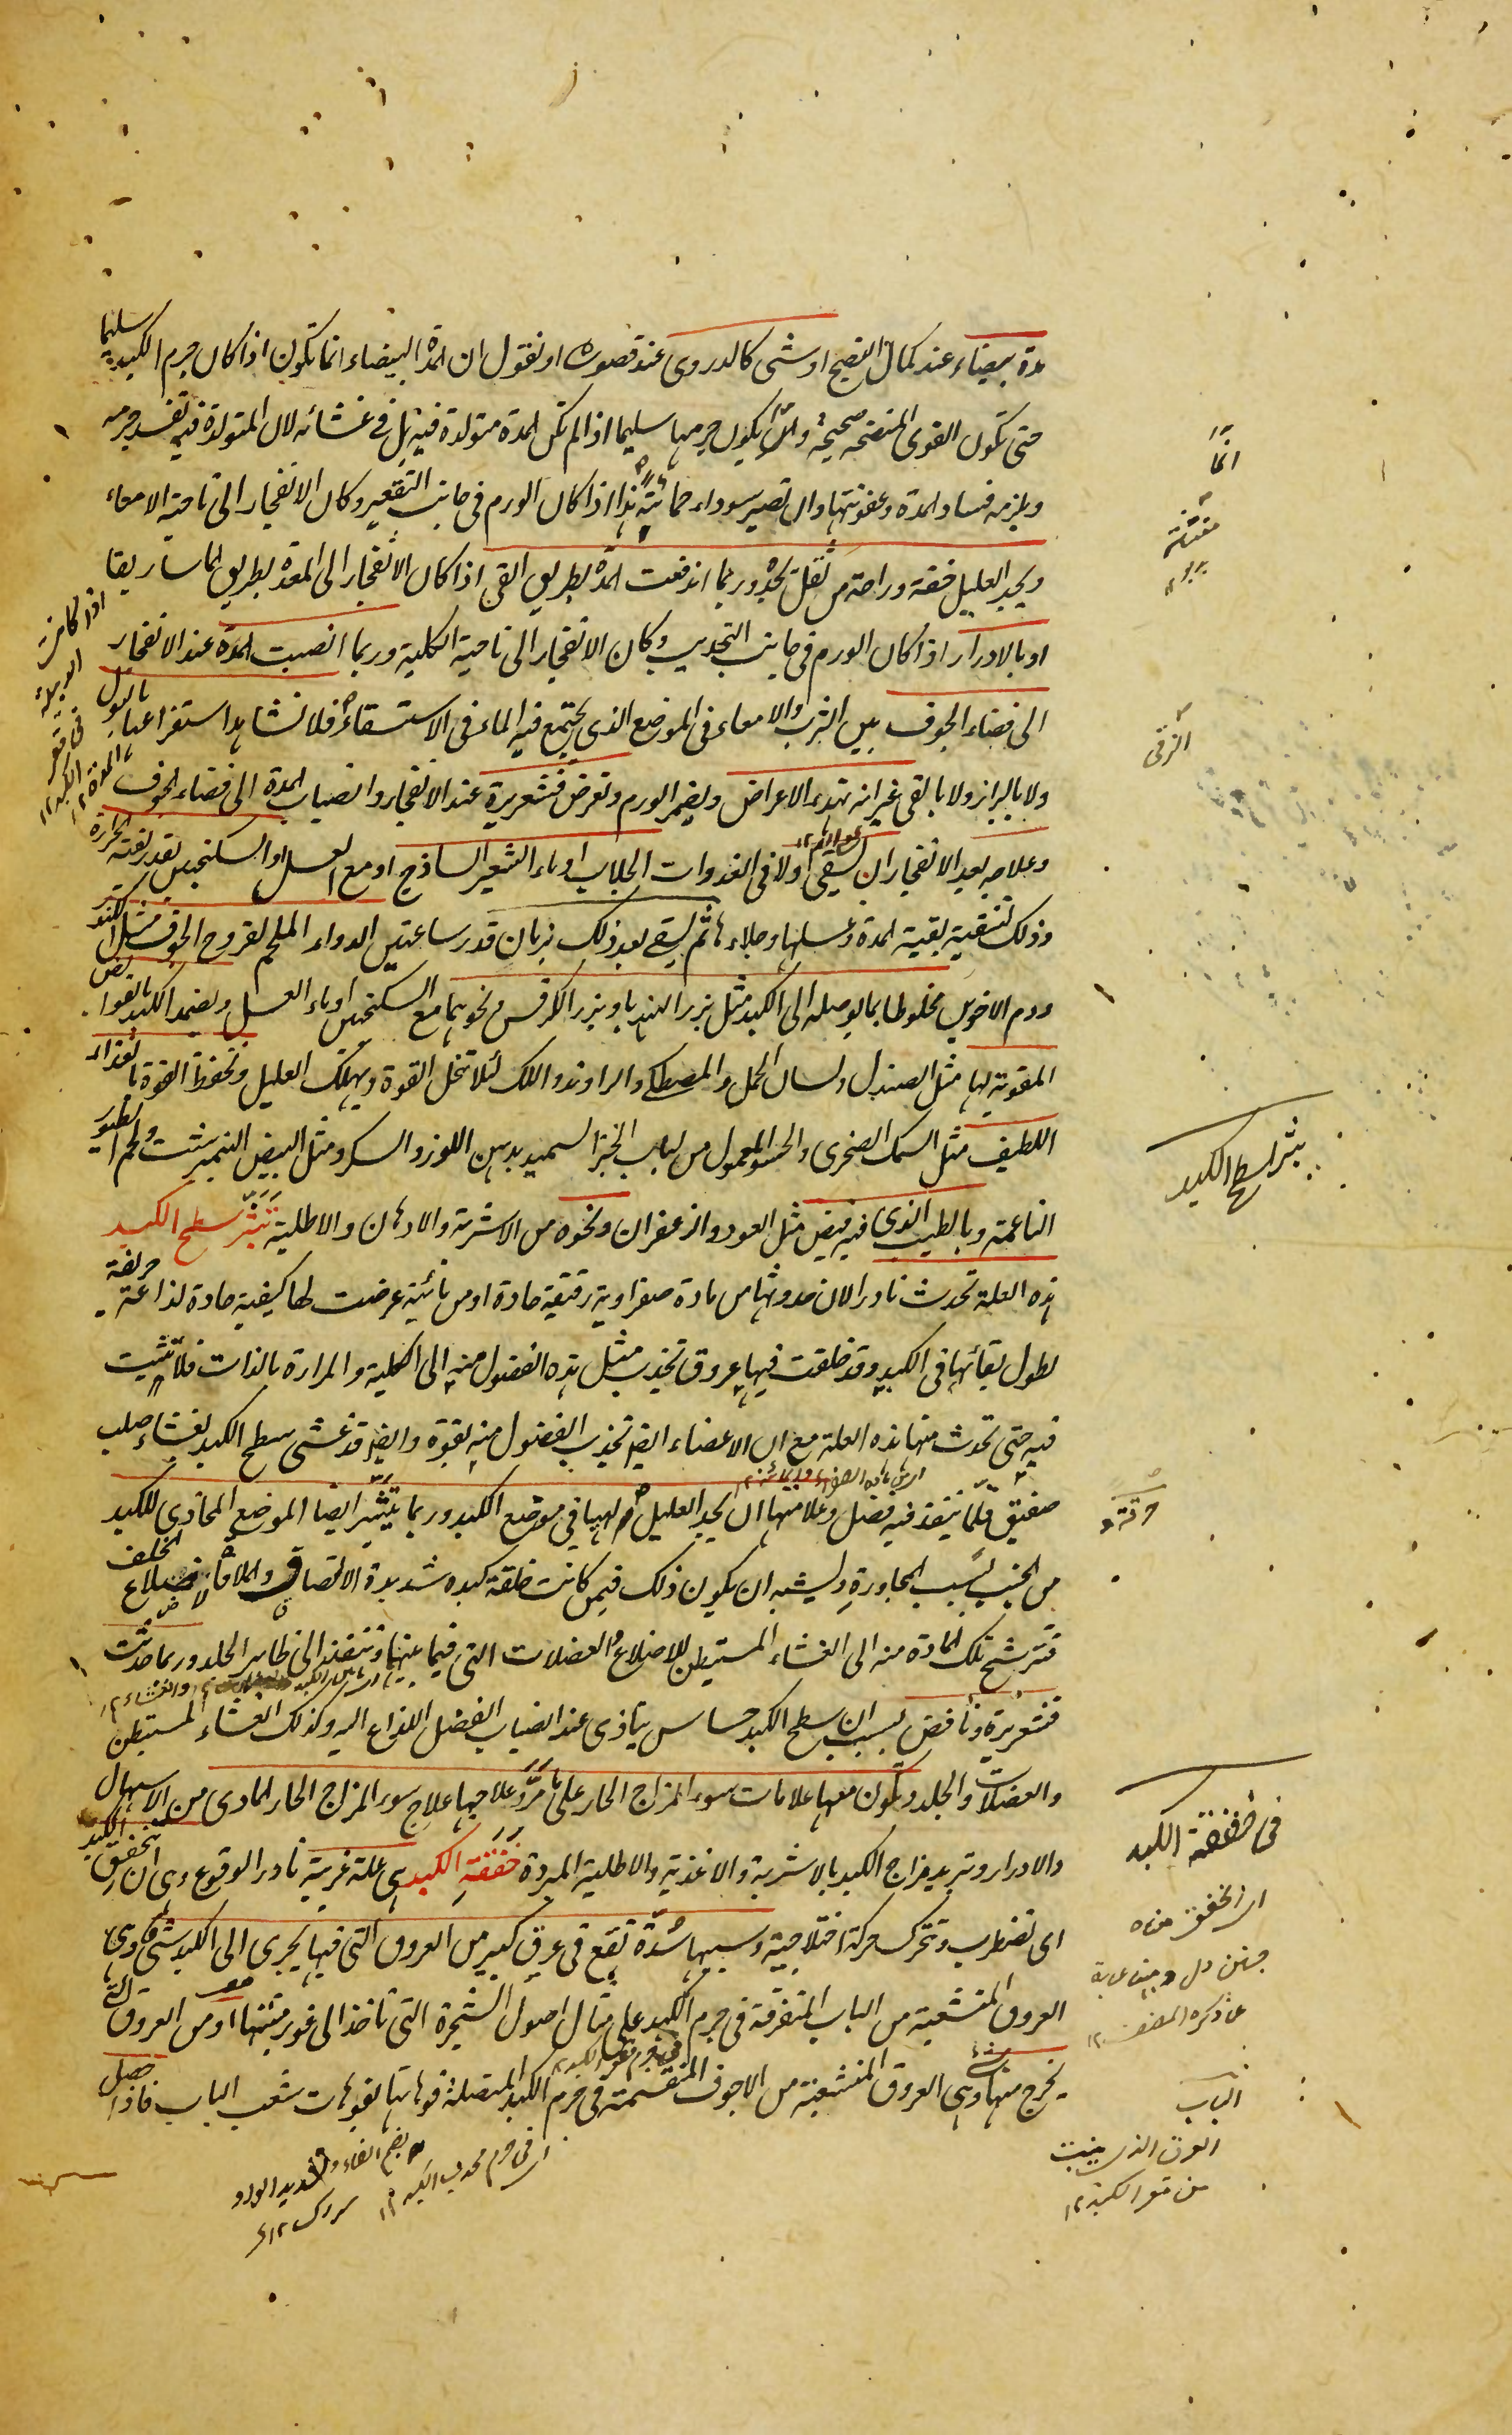 مدة بيضاء عند كمال النضج او شئ كالدردى عند قصوره او نقول ان المدة البيضاء انما تكون اذا كان جرم الكبد سليما
حتى تكون القوى المنضجة صحيحة وانما يكون جرمها سليما اذا لم تكن المدة متولدة فيه بل فى غشائه لان المتولدة فيه تفسد جرمه
ويلزمه فساد المدة وعفونتها وان تصير سوداء حمائية هذا اذا كان الورم فى جانب التقعير وكان الانفجار الى ناحية الامعاء
ويجد العليل خفة وراحة من ثقل يجده وربما اندفعت المدة بطريق القى اذا كان الانفجار الى المعدة بطريق الماساريقا
او بالادرار اذا كان الورم فى جانب التحديب وكان الانفجار الى ناحية الكلية وربما انصبت المدة عند الانفجار
الى فضاء الجوف بين الثرب والامعاء فى الموضع الذى يجتمع فيه الماء فى الاستسقاء فلا نشاهد استفراغها بالبول
ولا بالبراز ولا بالقى غير انه تهدء الاعراض ويضمر الورم وتعرض قشعريرة عند الانفجار وانصباب المدة الى فضاء الجوف
وعلاجه بعد الانفجار ان يسقى اولا فى الغدوات الجلاب او ماء الشعير الساذج او مع العسل او السكنجبين بقدر لقته الحرارة
وذلك لتنقية بقية المدة وغسلها وجلاءها ثم يسقى بعد ذلك بزمان قدر ساعتين الدواء الملحم لقروح الجوف مثل الكندر
ودم الاخوين مخلوطا بما يوصله الى الكبد مثل بزر الهندبا وبزر الكرفس ونحوهما مع السكنجبين او ماء العسل ويضمد الكبد بالقوابض
المقوية لها مثل الصندل ولسان الحمل والمصطكى والراوند واللك لئلا تنحل القوة ويهلك العليل وتحفظ القوة بالغذاء
اللطيف مثل السمك الصخرى والحسو المعمول من لباب الخبز السميد بدهن اللوز والسكر ومثل البيض النيمبرشت ولحم الطيور
الناعمة وبالطيب الذى فيه قبض مثل العود والزعفران ونحوه من الاشربة والادهان والاطلية تبثر سطح الكبد
هذه العلة تحدث نادرا لان حدوثها من مادة صفراوية رقيقة حادة او من مائية عرضت لها كيفية حادة لذاعة حريفة
لطول بقائها فى الكبد وقد خلقت فيها عروق تجذب مثل هذه الفضول منه الى الكلية والمرارة بالذات فلا تثبت
فيه حتى تحدث منها هذه العلة مع ان الاعضاء ايضا تجذب الفضول منه بقوة وايضا قد غشى سطح الكبد بغشاء صلب
صفيق قلما ينفذ فيه فضل وعلامتها ان يجد العليل لهيبا فى موضع الكبد وربما يتبثر ايضا الموضع المحاذى للكبد
من الجنب بسبب المجاورة ويشبه ان يكون ذلك فيمن كانت خلقة كبده شديدة الالتصاق والملاقاة لاضلاع الخلف
فتترشح تلك المادة منه الى الغشاء المستبطن للاضلاع والعضلات التى فيما بينها وتنفذ الى ظاهر الجلد وربما حدثت
قشعريرة ونافض بسبب ان سطح الكبد حساس يتاذى عند انصباب الفضل اللذاع اليه وكذلك الغشاء المستبطن
والعضلات والجلد وتكون معها علامات سوء المزاج الحار على ما مر وعلاجها علاج سوء المزاج الحار المادى من الاسهال
والادرار وتبريد مزاج الكبد بالاشربة والاغذية والاطلية المبردة خفقة الكبد هى علة غريبة نادر الوقوع وهى ان تخفق الكبد
اى تضطرب وتتحرك حركة اختلاجية وسببها سُدّة تقع فى عرق كبير من العروق التى فيها يجرى الى الكبد شئ وهى
العروق المنشعبة من الباب المتفرقة فى جرم الكبد على مثال اصول الشجرة التى تاخذ الى غور منبتها او من العروق التى
يخرج منها شئ وهى العروق المنشعبة من الاجوف المنقسمة فى جرم الكبد المتصلة فوهاتها بفوهات شعب الباب فاذا حصل
انما
الزقى
تبثر سطح الكبد
حرقة و
فى خفقة الكبد
الباب
العرق الذى ينبت
من مقعر الكبد ١٢
اذا كانت
الدبيلة
فى مقعر
الكبد ١٢
اى فى جرم محدب الكبد ١٢
بضم الفاء وتشديد الواو